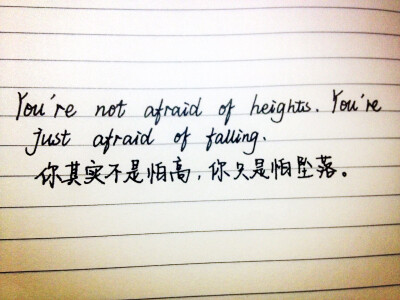 You're not afraid of heights. You're
just afraid of falling.
你其实不是怕高，你只是怕坠落。